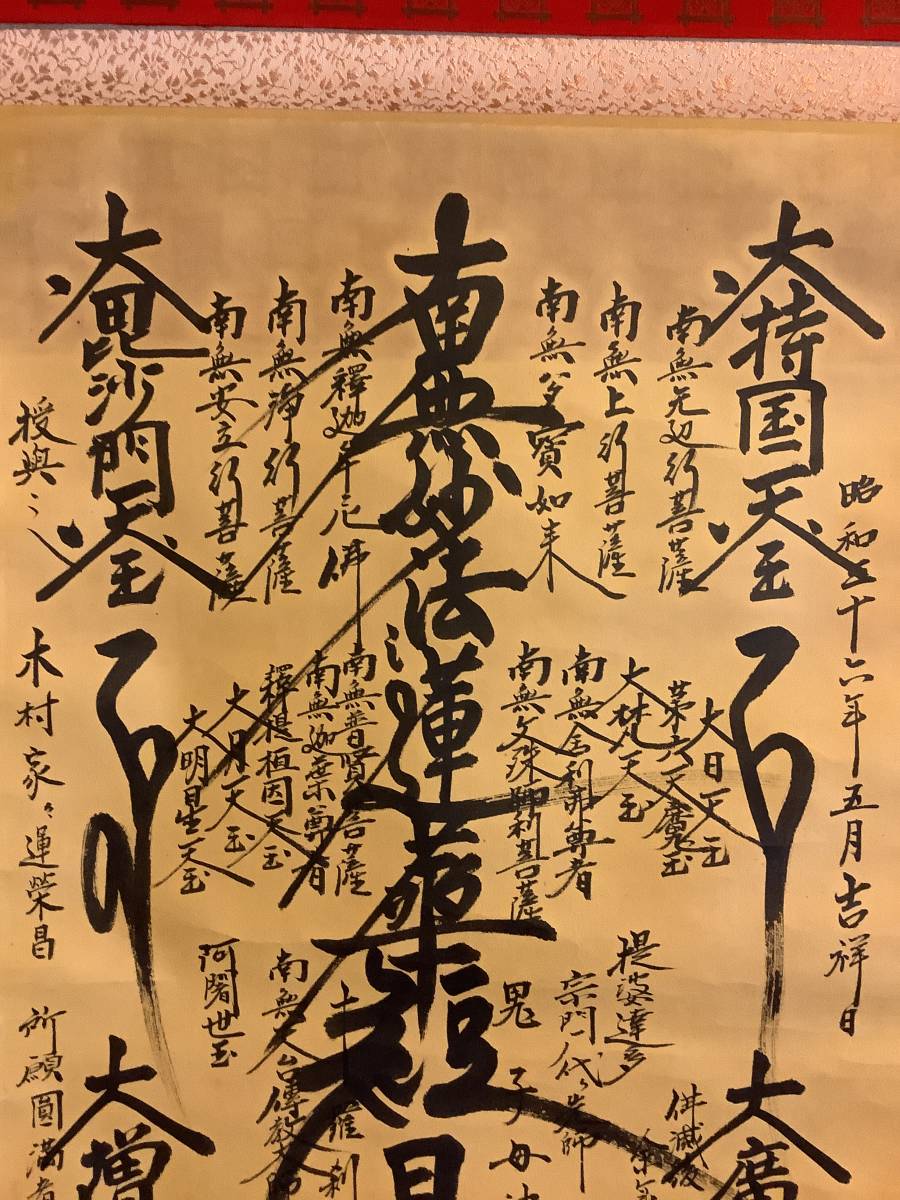 昭和五十六年五月吉祥日
大持国天王
南無无辺行菩薩
南無上行菩薩
南無多寳如来
南無妙法蓮華経 日
南無釋迦牟尼佛
南無浄行菩薩
南無安立行菩薩
大毘沙門天王
授與之
大日天王
第六天魔王
大梵天王
南無舎利弗尊者
南無文殊師利菩薩
南無普賢菩薩
南無迦葉尊者
釋提桓因天王
大月天王
大明星天王
木村家々運榮昌
大廣
佛滅後
提婆達多
宗門代々先師
鬼子母
十羅刹
南無天台傳教大師
阿闍世王
大増
所願圓満